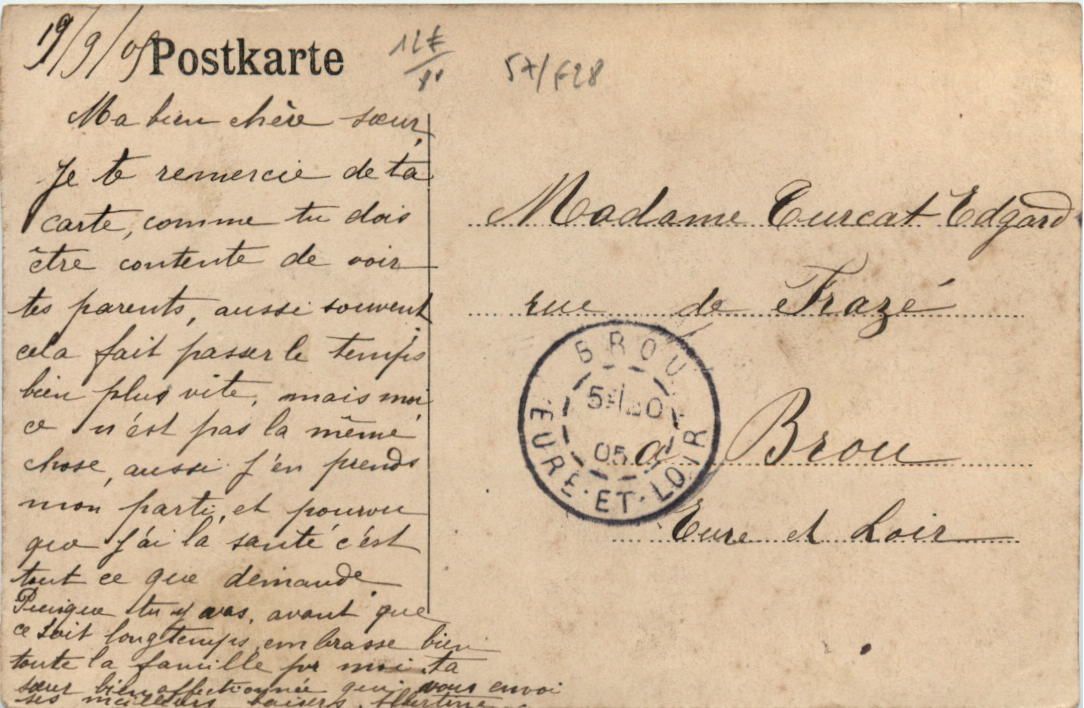 19/9/05
Postkarte
12€
57/F28
Ma bien chère sœur,
Je te remercie de ta
carte, comme tu dois
être contente de voir
tes parents, aussi souvent
cela fait passer le temps
bien plus vite, mais moi
ce n'est pas la même
chose, aussi j'en prends
mon parti, et pourvu
que j'ai la santé c'est
tout ce que demande
Puisque tu y vas, avant que
ce soit longtemps, embrasse bien
toute la famille pr moi. ta
sœur bien affectionnée qui vous envoi
ses meilleurs baisers. Albertine
Madame Turcat Edgard
rue de Frazé
à Brou
Eure et Loir
BROU
05
EURE-ET-LOIR